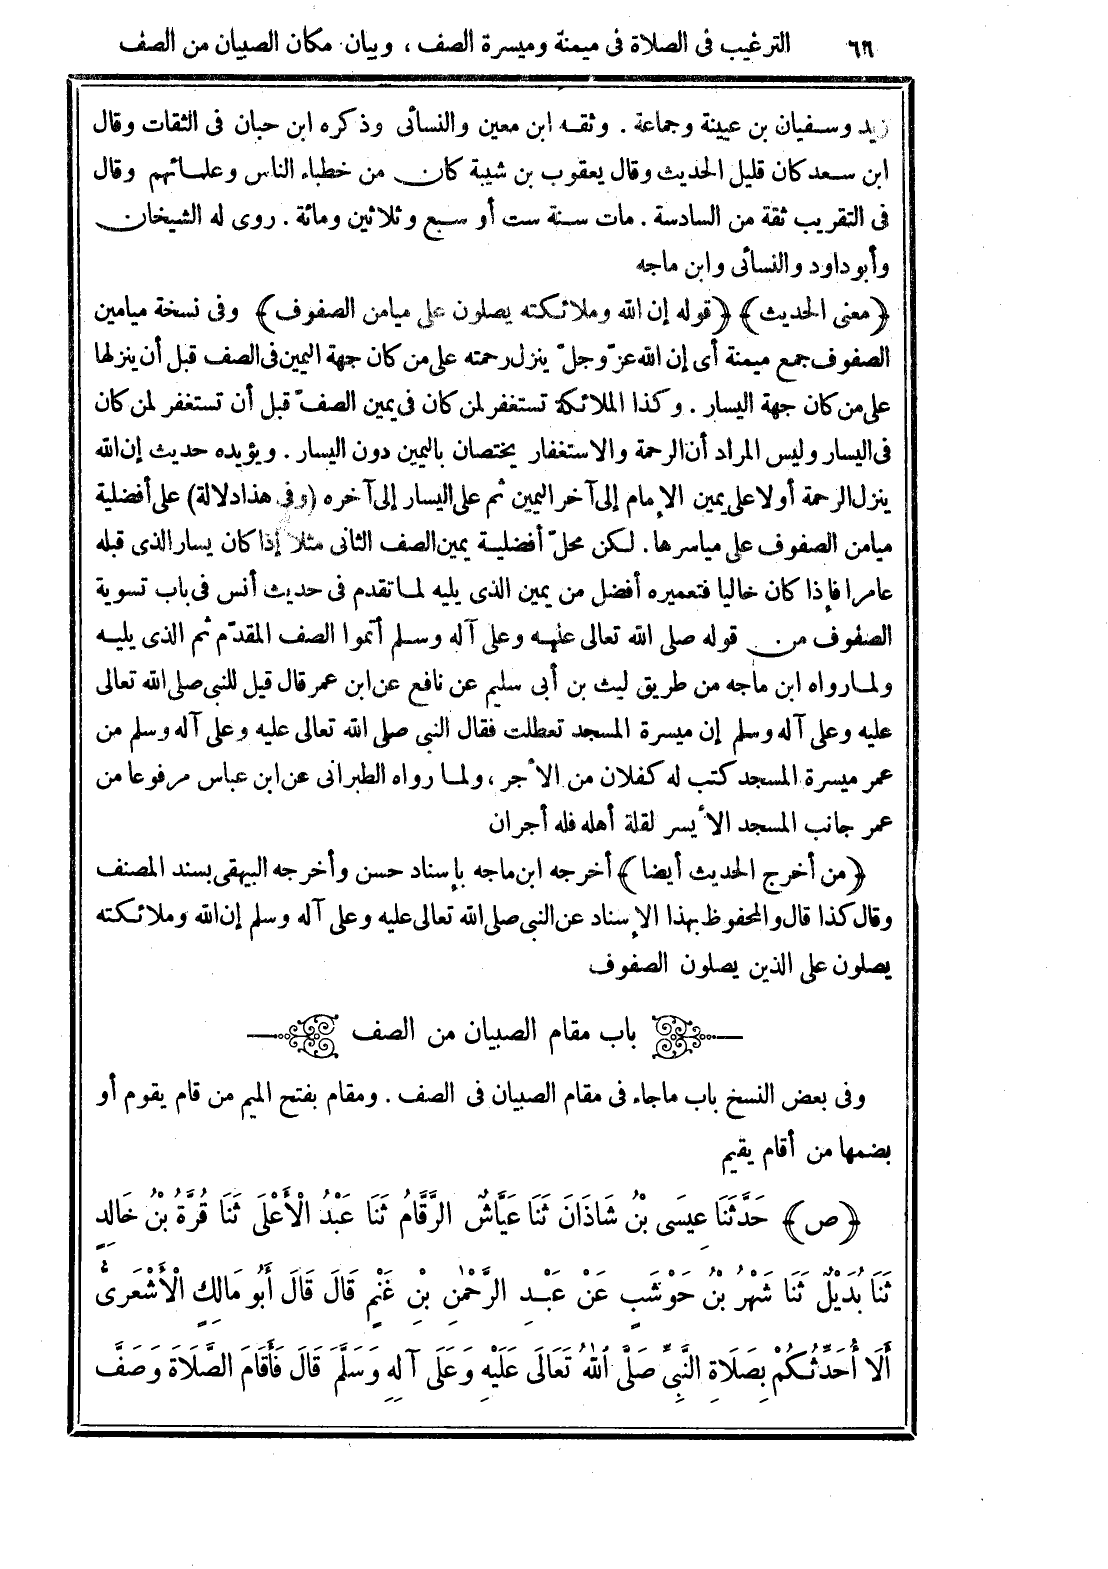 ٦٦ الترغيب فى الصلاة فى ميمنة وميسرة الصف ، وبيان مكان الصبيان من الصف
زيد وسفيان بن عيينة وجماعة . وثقه ابن معين والنسائى وذكره ابن حبان فى الثقات وقال
ابن سعد كان قليل الحديث وقال يعقوب بن شيبة كان من خطباء الناس وعلمائهم وقال
فى التقريب ثقة من السادسة . مات سنة ست أو سبع وثلاثين ومائة . روى له الشيخان
وأبو داود والنسائى وابن ماجه
﴿معنى الحديث﴾ ﴿قوله إن الله وملائكته يصلون على ميامن الصفوف﴾ وفى نسخة ميامين
الصفوف جمع ميمنة أى إن الله عزّ وجلّ ينزل رحمته على من كان جهة اليمين فى الصف قبل أن ينزلها
على من كان جهة اليسار . وكذا الملائكة تستغفر لمن كان فى يمين الصفّ قبل أن تستغفر لمن كان
فى اليسار وليس المراد أن الرحمة والاستغفار يختصان باليمين دون اليسار . ويؤيده حديث إن الله
ينزل الرحمة أولا على يمين الإمام إلى آخر اليمين ثم على اليسار إلى آخره (وفى هذا دلالة) على أفضلية
ميامن الصفوف على مياسرها . لكن محلّ أفضلية يمين الصف الثانى مثلا إذا كان يسار الذى قبله
عامرا فإذا كان خاليا فتعميره أفضل من يمين الذى يليه لما تقدم فى حديث أنس فى باب تسوية
الصفوف من قوله صلى الله تعالى عليه وعلى آله وسلم أتموا الصف المقدّم ثم الذى يليه
ولما رواه ابن ماجه من طريق ليث بن أبى سليم عن نافع عن ابن عمر قال قيل للنبى صلى الله تعالى
عليه وعلى آله وسلم إن ميسرة المسجد تعطلت فقال النبى صلى الله تعالى عليه وعلى آله وسلم من
عمر ميسرة المسجد كتب له كفلان من الأجر ، ولما رواه الطبرانى عن ابن عباس مرفوعا من
عمر جانب المسجد الأيسر لقلة أهله فله أجران
﴿من أخرج الحديث أيضا﴾ أخرجه ابن ماجه بإسناد حسن وأخرجه البيهقى بسند المصنف
وقال كذا قال والمحفوظ بهذا الإسناد عن النبى صلى الله تعالى عليه وعلى آله وسلم إن الله وملائكته
يصلون على الذين يصلون الصفوف
باب مقام الصبيان من الصف
وفى بعض النسخ باب ماجاء فى مقام الصبيان فى الصف . ومقام بفتح الميم من قام يقوم أو
بضمها من أقام يقيم
﴿ص﴾ حَدَّثَنَا عِيسَى بْنُ شَاذَانَ ثَنَا عَيَّاشٌ الرَّقَّامُ ثَنَا عَبْدُ الْأَعْلَى ثَنَا قُرَّةُ بْنُ خَالِدٍ
ثَنَا بُدَيْلٌ ثَنَا شَهْرُ بْنُ حَوْشَبٍ عَنْ عَبْدِ الرَّحْمٰنِ بْنِ غَنْمٍ قَالَ قَالَ أَبُو مَالِكٍ الْأَشْعَرِىُّ
أَلَا أُحَدِّثُكُمْ بِصَلَاةِ النَّبِىِّ صَلَّى اللهُ تَعَالَى عَلَيْهِ وَعَلَى آلِهِ وَسَلَّمَ قَالَ فَأَقَامَ الصَّلَاةَ وَصَفَّ